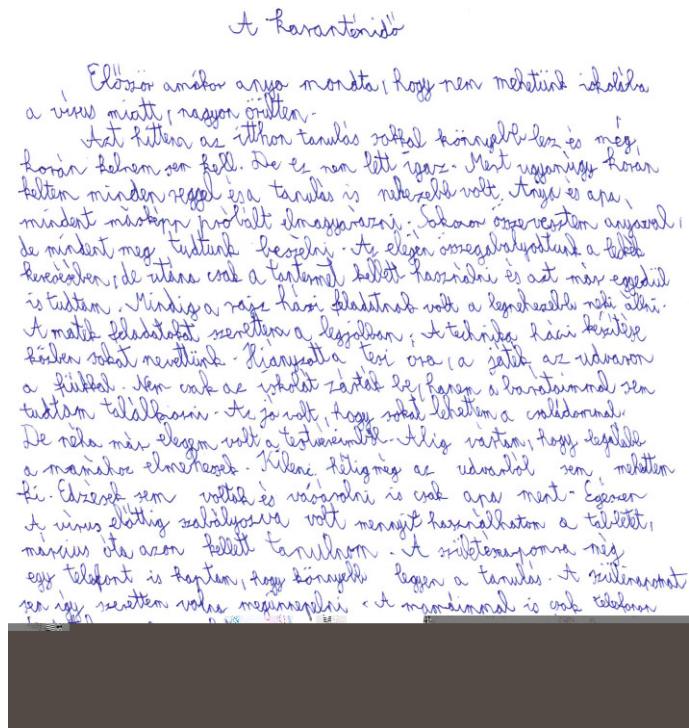 A karanténidő
Először amikor anya mondta, hogy nem mehetünk iskolába
a vírus miatt, nagyon örülten.
Azt hittem az itthon tanulás sokkal könnyebb lez és még
korán kelnem sem kell. De ez nem lett igaz. Mert ugyanúgy korán
keltem minden reggel és a tanulás is nehezebb volt. Anya és apa,
mindent másképp próbált elmagyarázni. Sokszor összevesztem anyával,
de mindent meg tudtunk beszélni. Az elején összegabalyodtunk a leckék
keresésben, de utána csak a tantermet kellett használni és azt már egyedül
is tudtam. Mindig a rajz házi feladatnak volt a legnehezebb neki állni.
A matek feladatokat szerettem a legjobban. A technika házi készítése
közben sokat nevettünk. Hiányzott a tesi óra, a játék az udvaron
a fiúkkal. Nem csak az iskolát zárták be, hanem a barátaimmal sem
tudtam találkozni. Az jó volt, hogy sokat lehettem a családommal.
De néha már elegem volt a testvéreimből. Alig vártam, hogy legalább
a mamához elmehessek. Kileni hétig még az udvarból sem mehettem
ki. Edzések sem voltak és vásárolni is csak apa ment. Egészen
A vírus előttig szabályozva volt mennyit használhatom a tabletet,
március óta azon kellett tanulnom. A születésnapomra még
egy telefont is kaptam, hogy könnyebb legyen a tanulás. A szülinapomat
sem így szerettem volna megünnepelni. A mamáimmal is csak telefonon